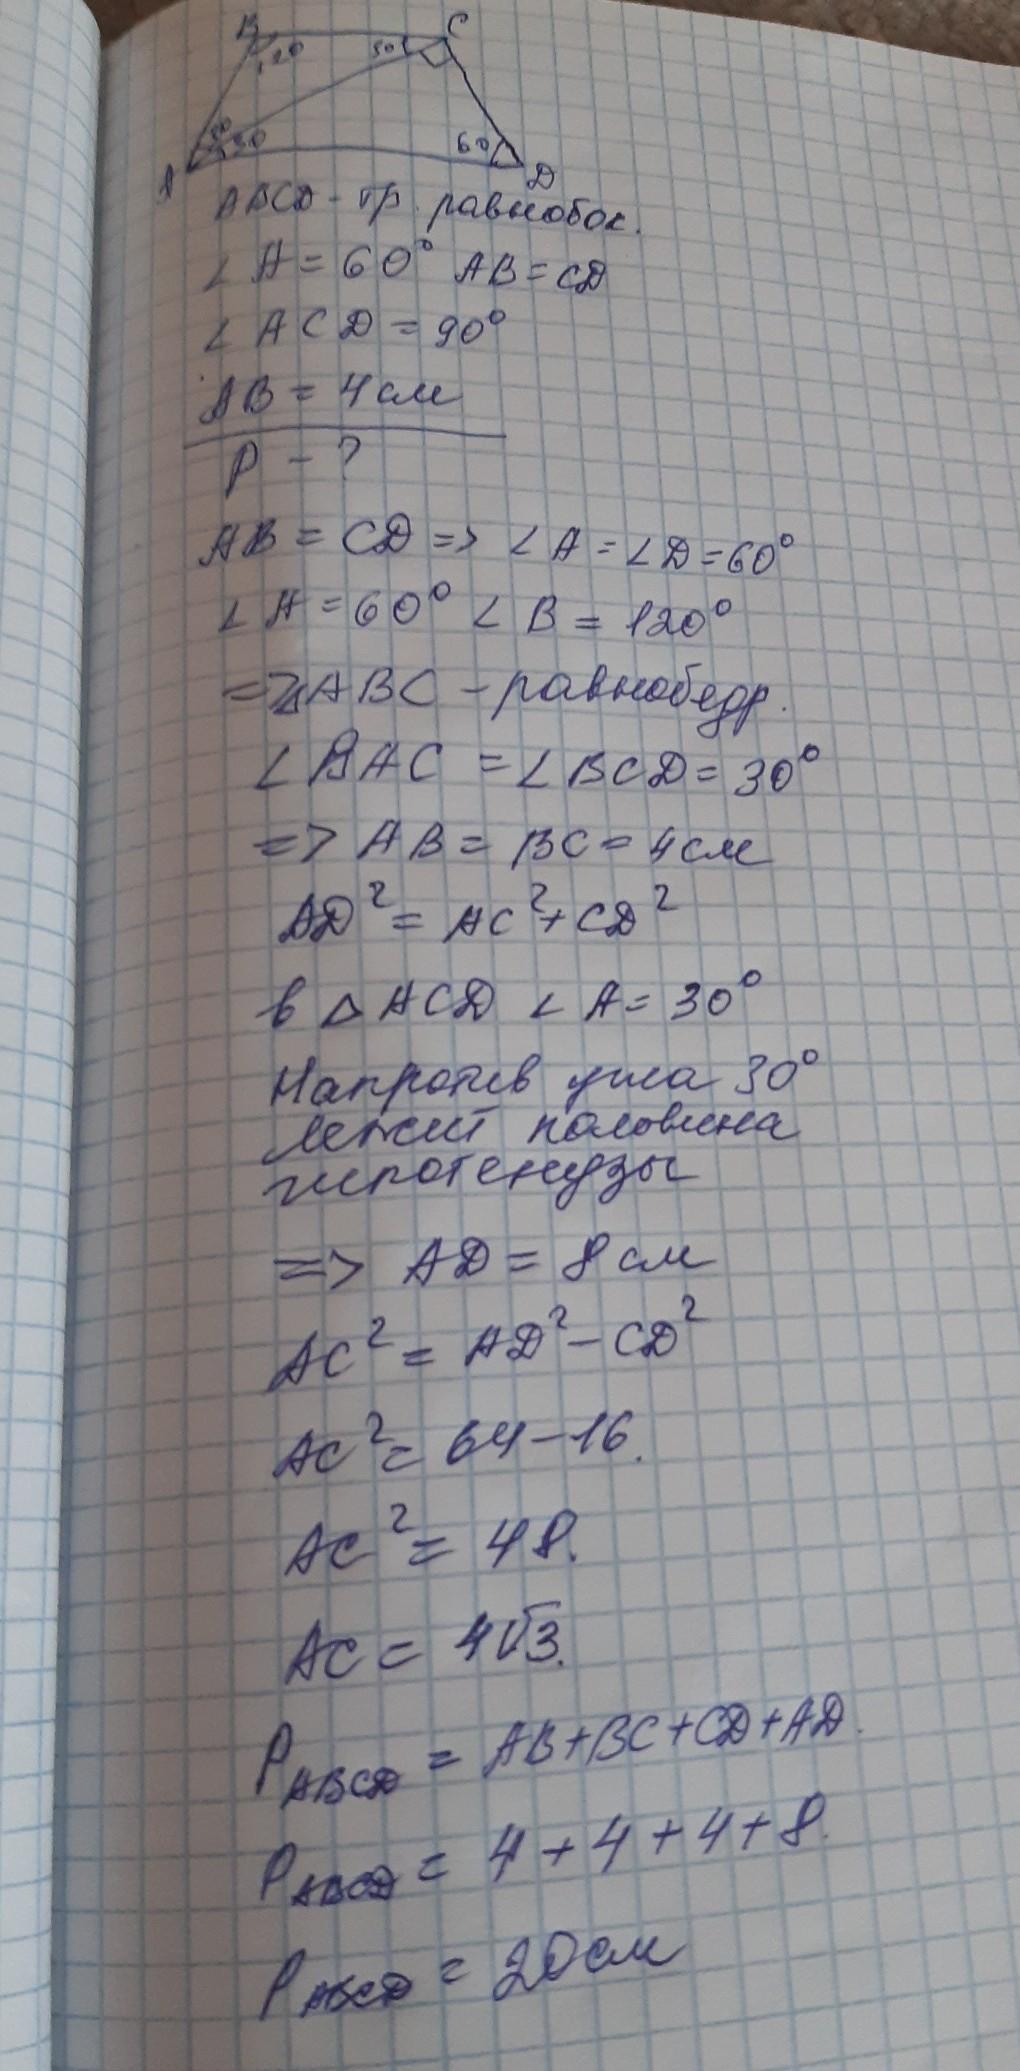 B C
120 30
30 30 60
A D
ABCD - тр. равнобок.
∠A = 60° AB = CD
∠ACD = 90°
AB = 4 см
P - ?
AB = CD => ∠A = ∠D = 60°
∠A = 60° ∠B = 120°
=> △ABC - равнобедр.
∠BAC = ∠BCD = 30°
=> AB = BC = 4 см
AD² = AC² + CD²
в △ACD ∠A = 30°
Напротив угла 30°
лежит половина
гипотенузы
=> AD = 8 см
AC² = AD² - CD²
AC² = 64 - 16.
AC² = 48.
AC = 4√3.
P ABCD = AB + BC + CD + AD.
P ABCD = 4 + 4 + 4 + 8.
P ABCD = 20 см